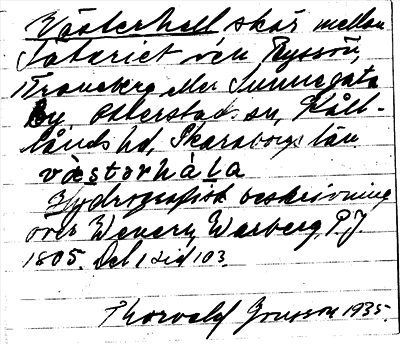 Västerhall skär mellan
Tåtariet och Ryssön,
Traneberg eller Sunnegata
By, Otterstad sn, Kål-
lands hd, Skaraborgs län
västərhåla
Hydrografisk beskrivning
över Wenern, Warberg, P.J
1805. Del 1 sid 103.
Thorvald Jonsson 1935.